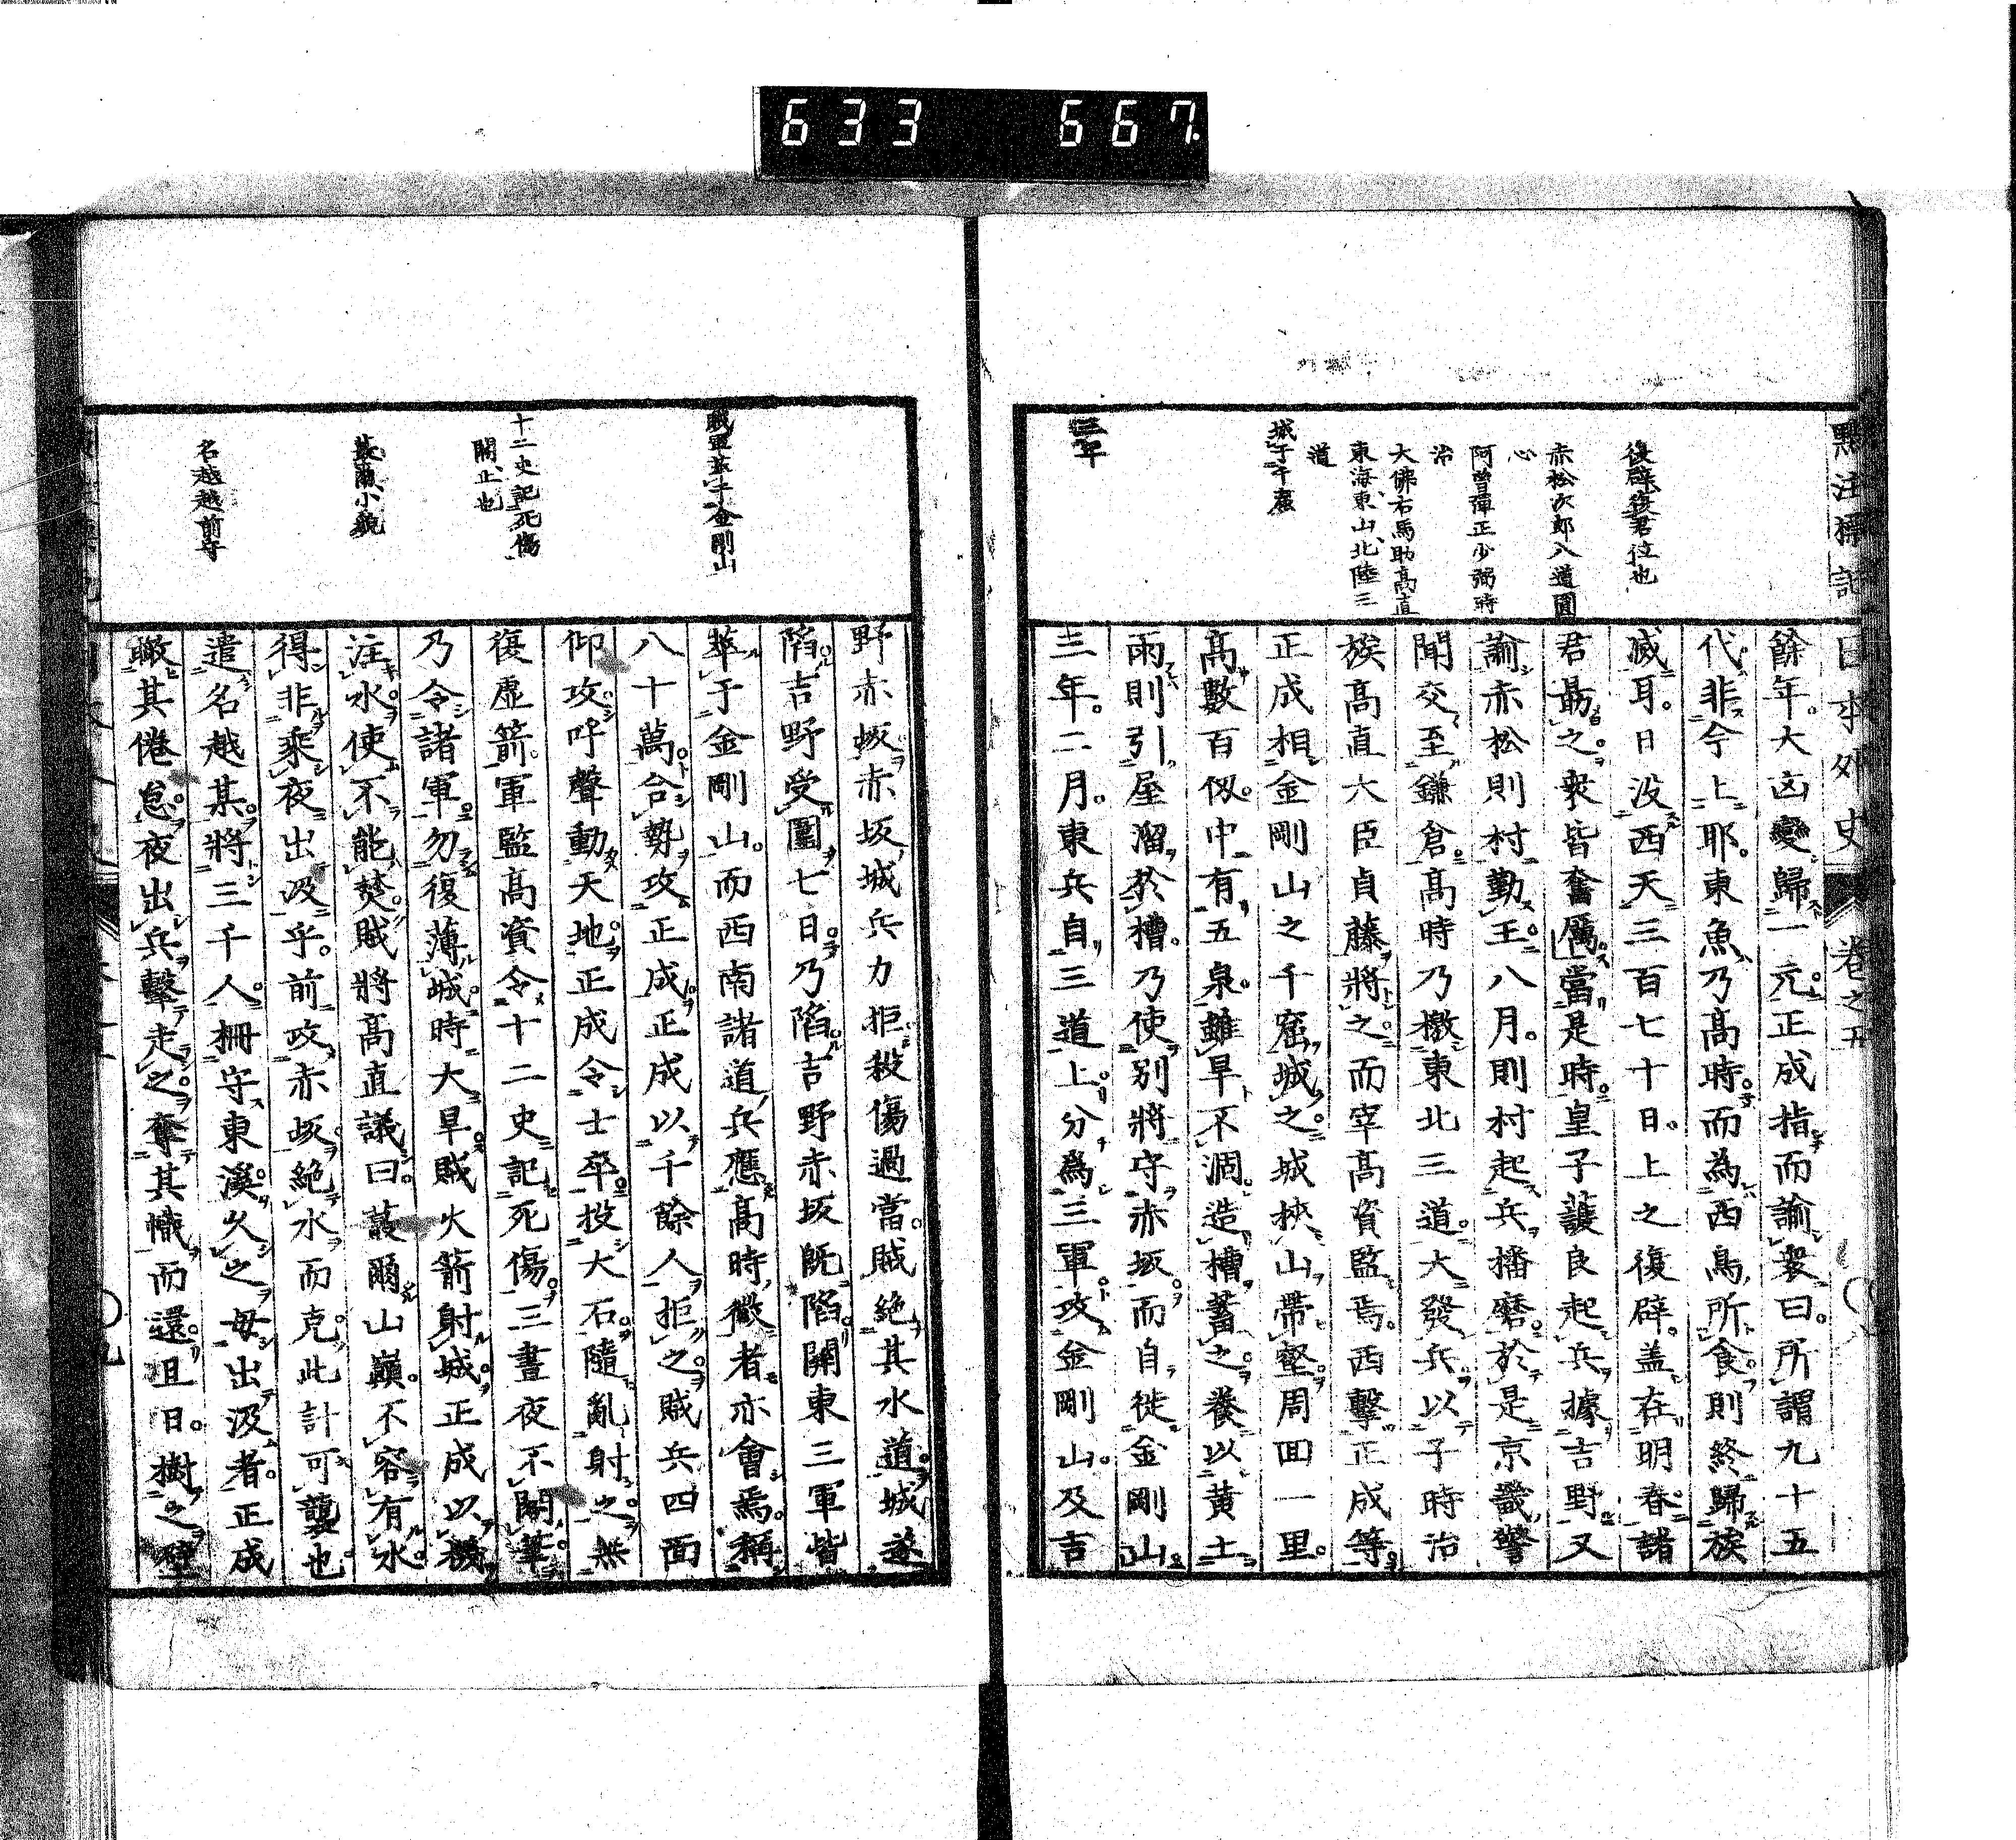 633 667
點注標記日本外史
卷之五
復辟、復君位也
赤松次郎入道圓
心
阿曾彈正少弼時
治
大佛右馬助高直
東海、東山、北陸三
道
城于千窟
三年
餘年。大凶變歸一元。正成指而諭衆曰。所謂九十五
代。非今上耶。東魚乃高時。而為西鳥所食。則終歸族
滅耳。日没西天三百七十日。上之復辟。盖在明春。諸
君勗之。衆皆奮厲。當是時。皇子護良起兵據吉野。又
諭赤松則村勤王。八月。則村起兵播磨。於是京畿警
聞交至鎌倉。高時乃檄東北三道。大發兵。以子時治
族高直大臣貞藤將之。而宰高資監焉。西擊正成等。
正成相金剛山之千窟城之。城挾山帶壑。周回一里。
高數百仭。中有五泉。雖旱不涸。造槽蓄之。養以黃土
雨則引屋溜於槽。乃使別將守赤坂。而自徙金剛山。
三年。二月。東兵自三道上。分爲三軍。攻金剛山。及吉
賊軍萃于金剛山
十二史記死傷
閣、止也
蕞爾、小貌
名越越前守
野赤坂。赤坂城兵力拒。殺傷過當。賊絕其水道。城遂
陷。吉野受圍七日。乃陷。吉野赤坂既陷。關東三軍皆
萃于金剛山。而西南諸道兵應高時徵者亦會焉。稱
八十萬。合勢攻正成。正成以千餘人拒之。賊兵四面
仰攻。呼聲動天地。正成令士卒投大石。隨亂射之。無
復虛箭。軍監高資令十二史記死傷。三晝夜不閣筆。
乃令諸軍勿復薄城。時大旱。賊火箭射城。正成以機
注水。使不能焚。賊將高直議曰。蕞爾山巓。不容有水。
得非乘夜出汲乎。前攻赤坂。絕水而克。此計可襲也。
遣名越某。將三千人。柵守東溪。久之毋出汲者。正成
瞰其倦怠。夜出兵擊走之。奪其幟而還。且日。樹之壁